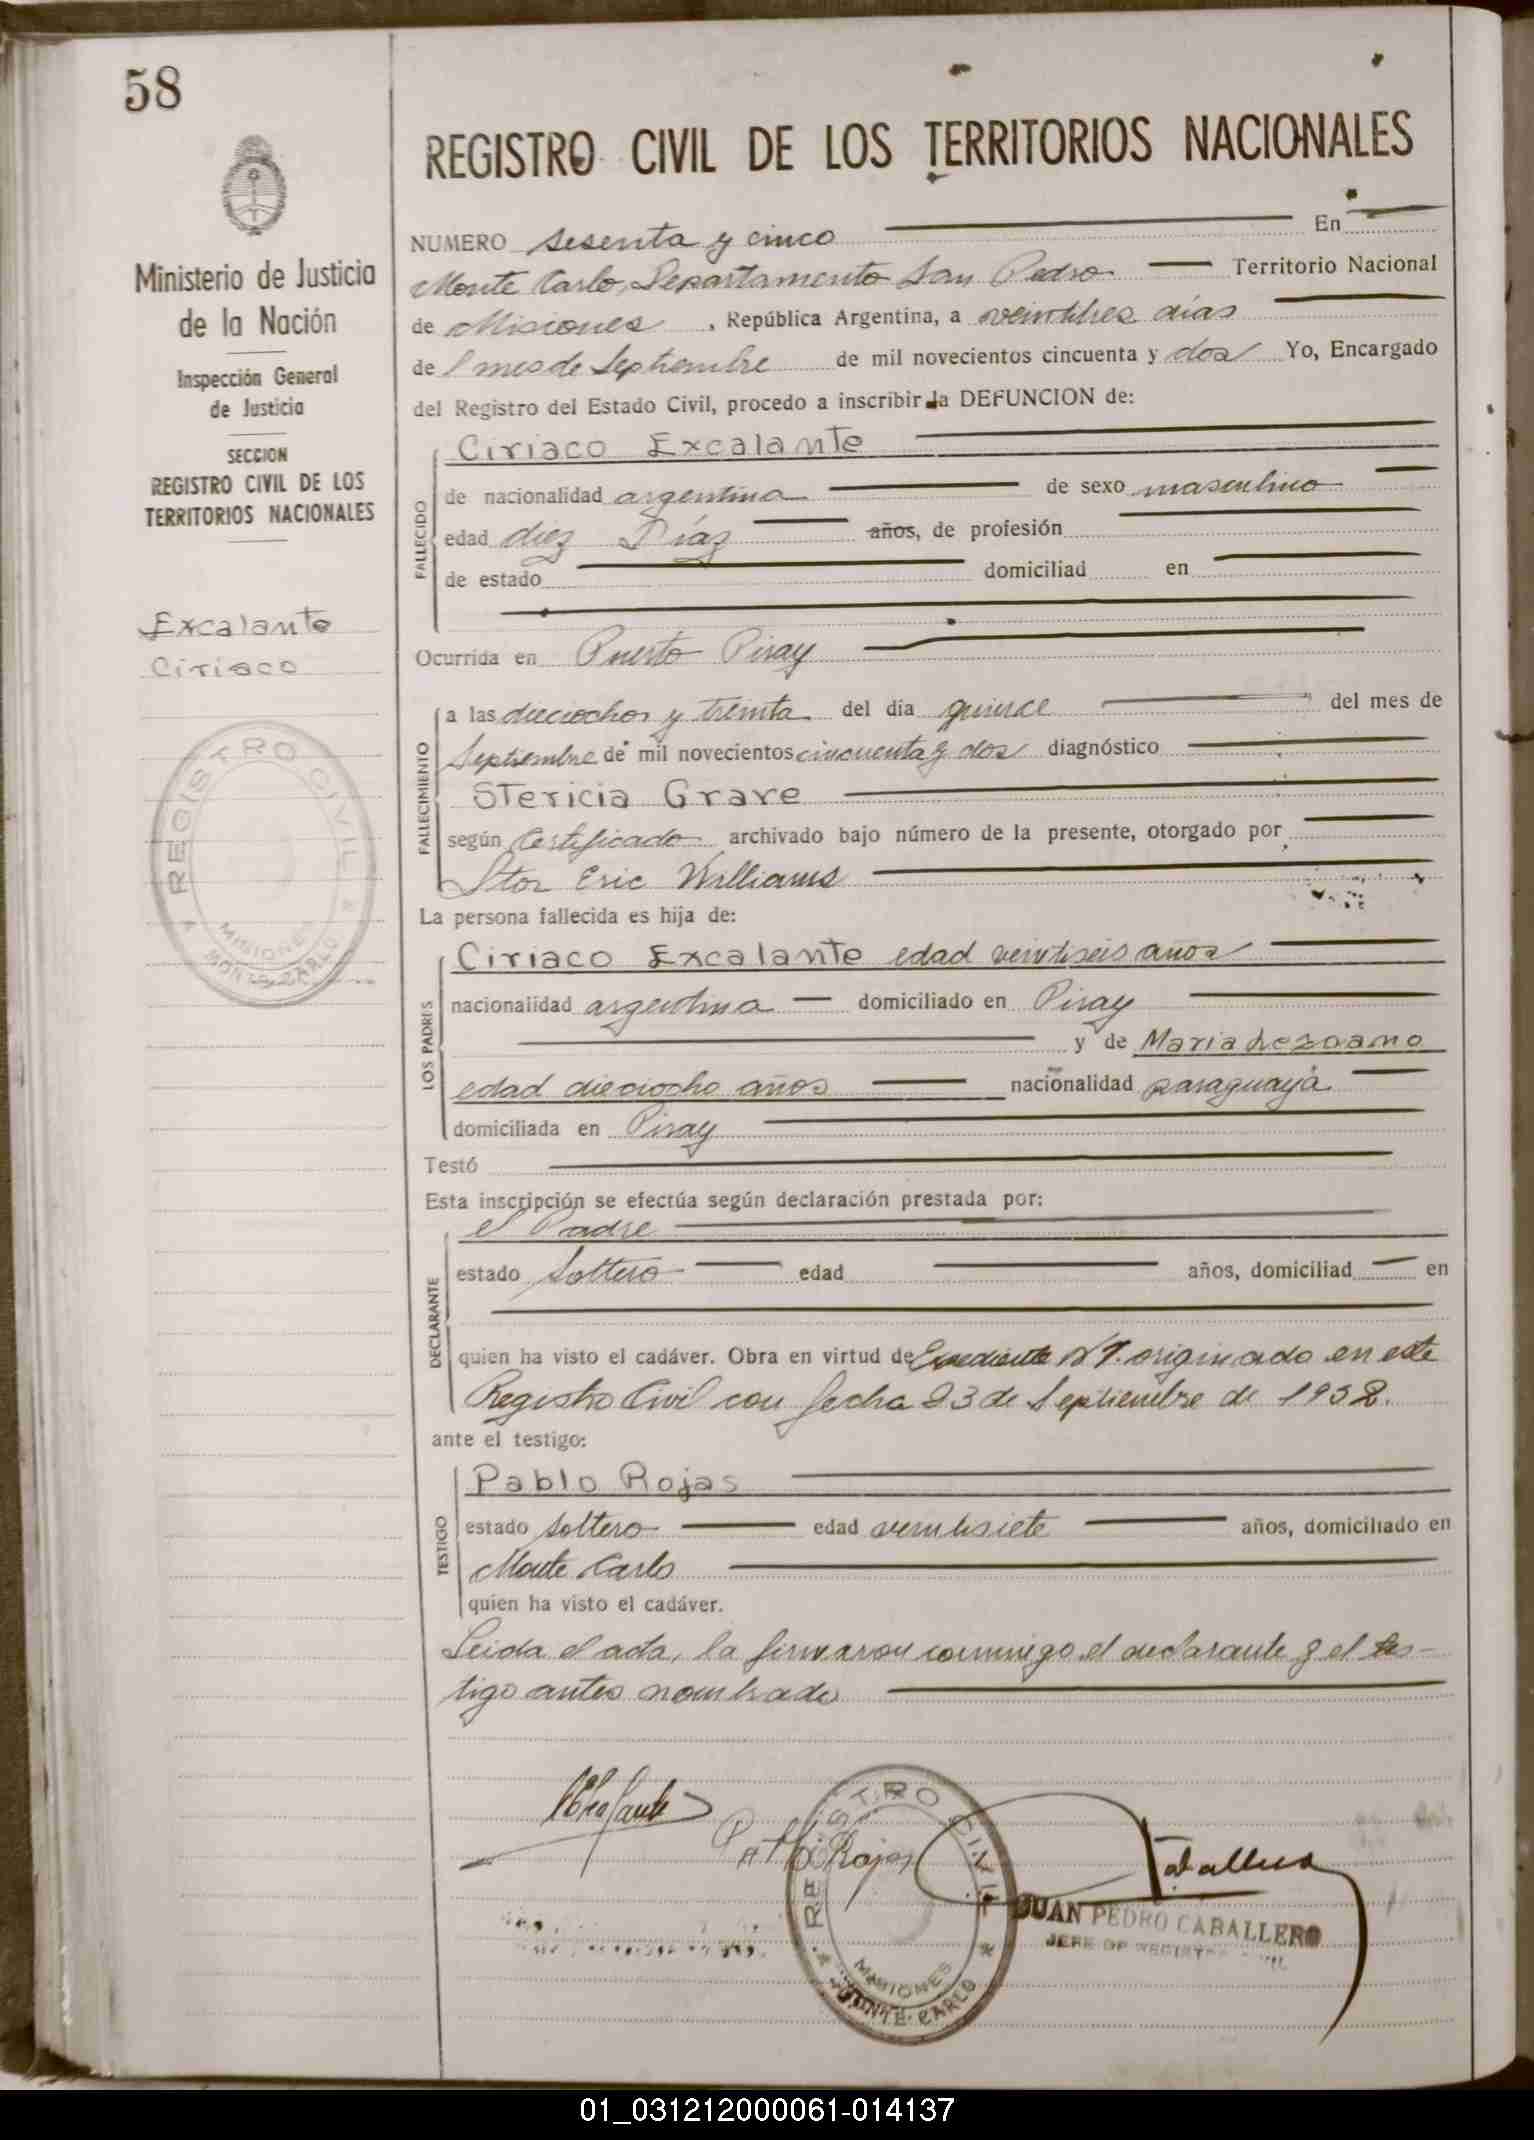 58
REGISTRO CIVIL DE LOS TERRITORIOS NACIONALES
Ministerio de Justicia
de la Nación
Inspección General
de Justicia
SECCION
REGISTRO CIVIL DE LOS
TERRITORIOS NACIONALES
Excalante
Ciriaco
REGISTRO CIVIL
MISIONES
MONTE CARLO
NUMERO sesenta y cinco En
Monte Carlo, Departamento San Pedro Territorio Nacional
de Misiones, República Argentina, a veintitres días
del mes de Septiembre de mil novecientos cincuenta y dos Yo, Encargado
del Registro del Estado Civil, procedo a inscribir la DEFUNCION de:
FALLECIDO
Ciriaco Excalante
de nacionalidad argentina de sexo masculino
edad diez Díaz años, de profesión
de estado domiciliad en
Ocurrida en Puerto Piray
FALLECIMIENTO
a las dieciochos y treinta del día quince del mes de
Septiembre de mil novecientos cincuenta y dos diagnóstico
Stericia Grave
según Certificado archivado bajo número de la presente, otorgado por
Eric Williams
La persona fallecida es hija de:
LOS PADRES
Ciriaco Excalante edad veintiseis años
nacionalidad argentina domiciliado en Piray
y de Maria
edad dieciocho años nacionalidad paraguaya
domiciliada en Piray
Testó
Esta inscripción se efectúa según declaración prestada por:
DECLARANTE
el Padre
estado Soltero edad años, domiciliad en
quien ha visto el cadáver. Obra en virtud de originado en este
Registro Civil con fecha 23 de Septiembre de 1952.
ante el testigo:
TESTIGO
Pablo Rojas
estado soltero edad veintisiete años, domiciliado en
Monte Carlo
quien ha visto el cadáver.
Leida el acta, la firmaron conmigo el declarante y el tes-
tigo antes nombrado
Rojas
Caballero
REGISTRO CIVIL
MISIONES
MONTE CARLO
JUAN PEDRO CABALLERO
JEFE DE REGISTRO CIVIL
01_031212000061-014137